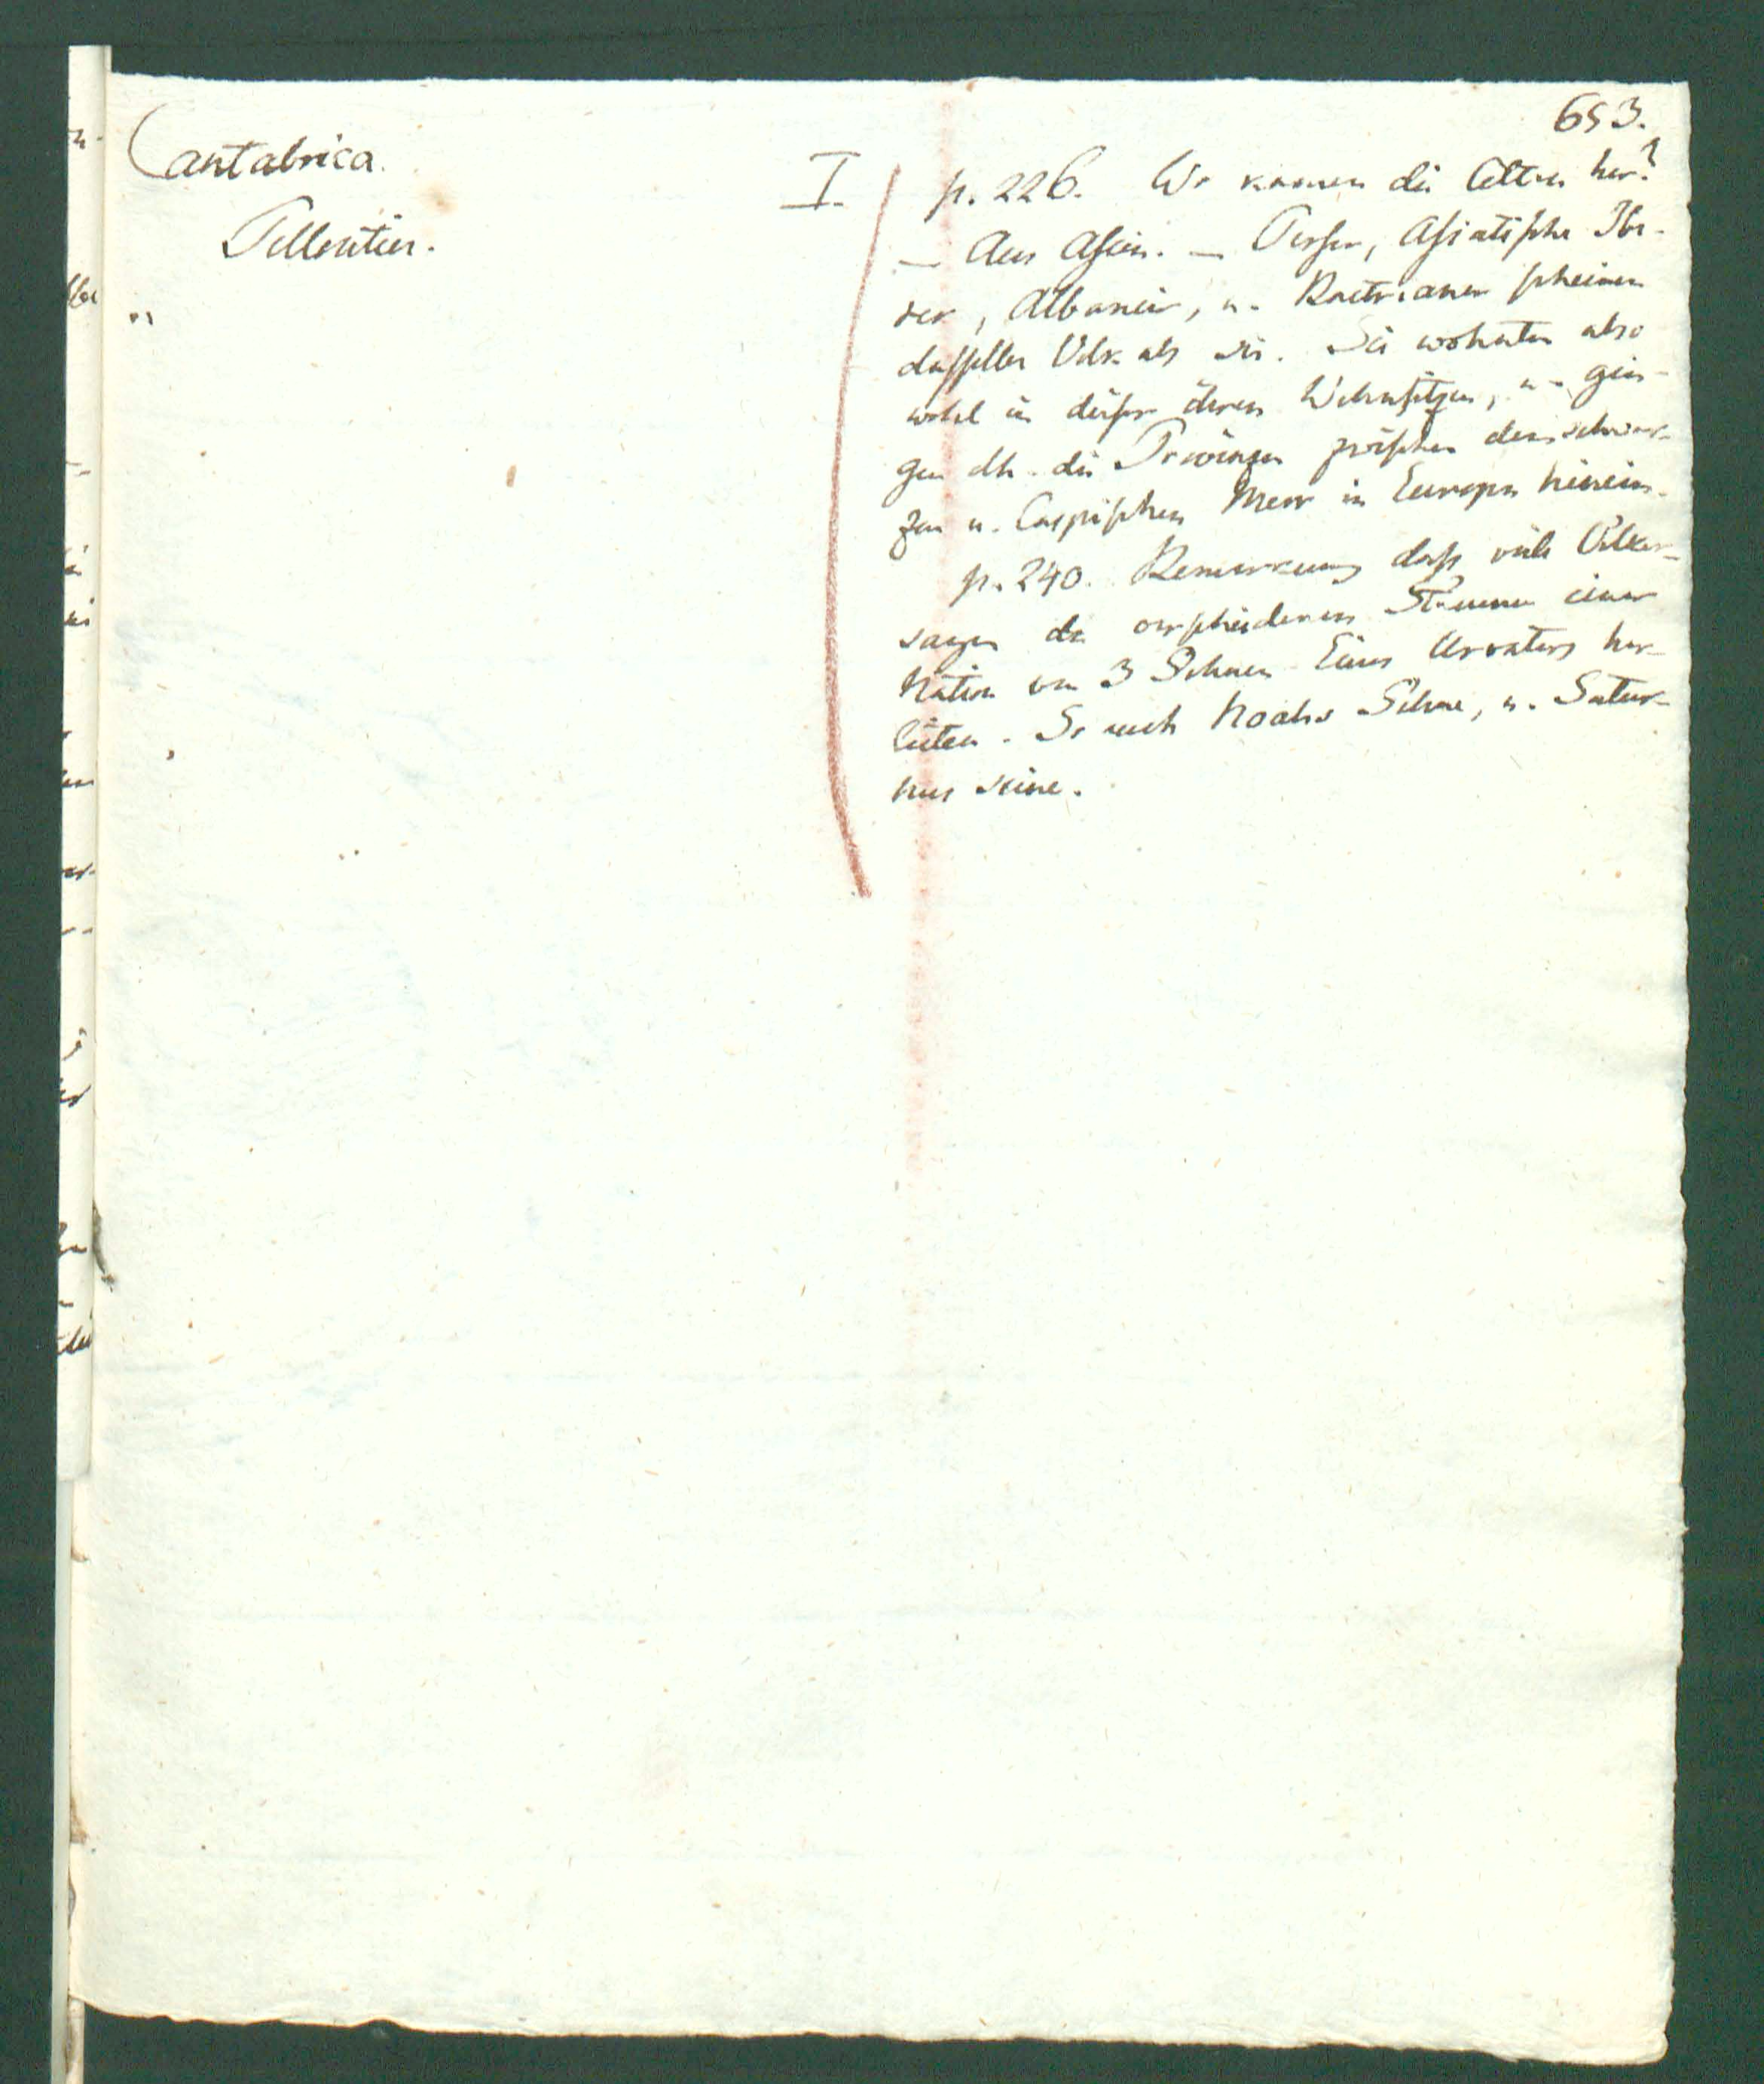 653.
Cantabrica.
Pelloutier.
I.
p. 226. Wo kamen die Celten her?
— Aus Asien. — Perser, Asiatische Ibe-
rer, Albanier, u. Bactrianer scheinen
dasselbe Volk als sie. Sie wohnten also
wohl in dieser ihren Wohnsitzen, u. gin-
gen dh. die Provinzen zwischen dem schwar-
zen u. Caspischen Meer in Europa hinein.
p. 240. Bemerkung dass viele Völker-
sagen die verschiedenen Stämme einer
Nation von 3 Söhnen Eines Urvaters her-
leiten. So auch Noahs Söhne, u. Satur-
nus seine.